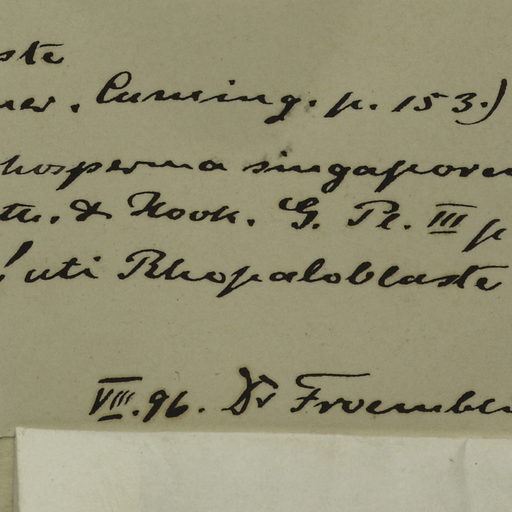 ste
. p. 153.)
hosperma singapore
th. & Hook. G. Pl. III p
! uti Rhopaloblaste
VIII. 96. Dr Froembl